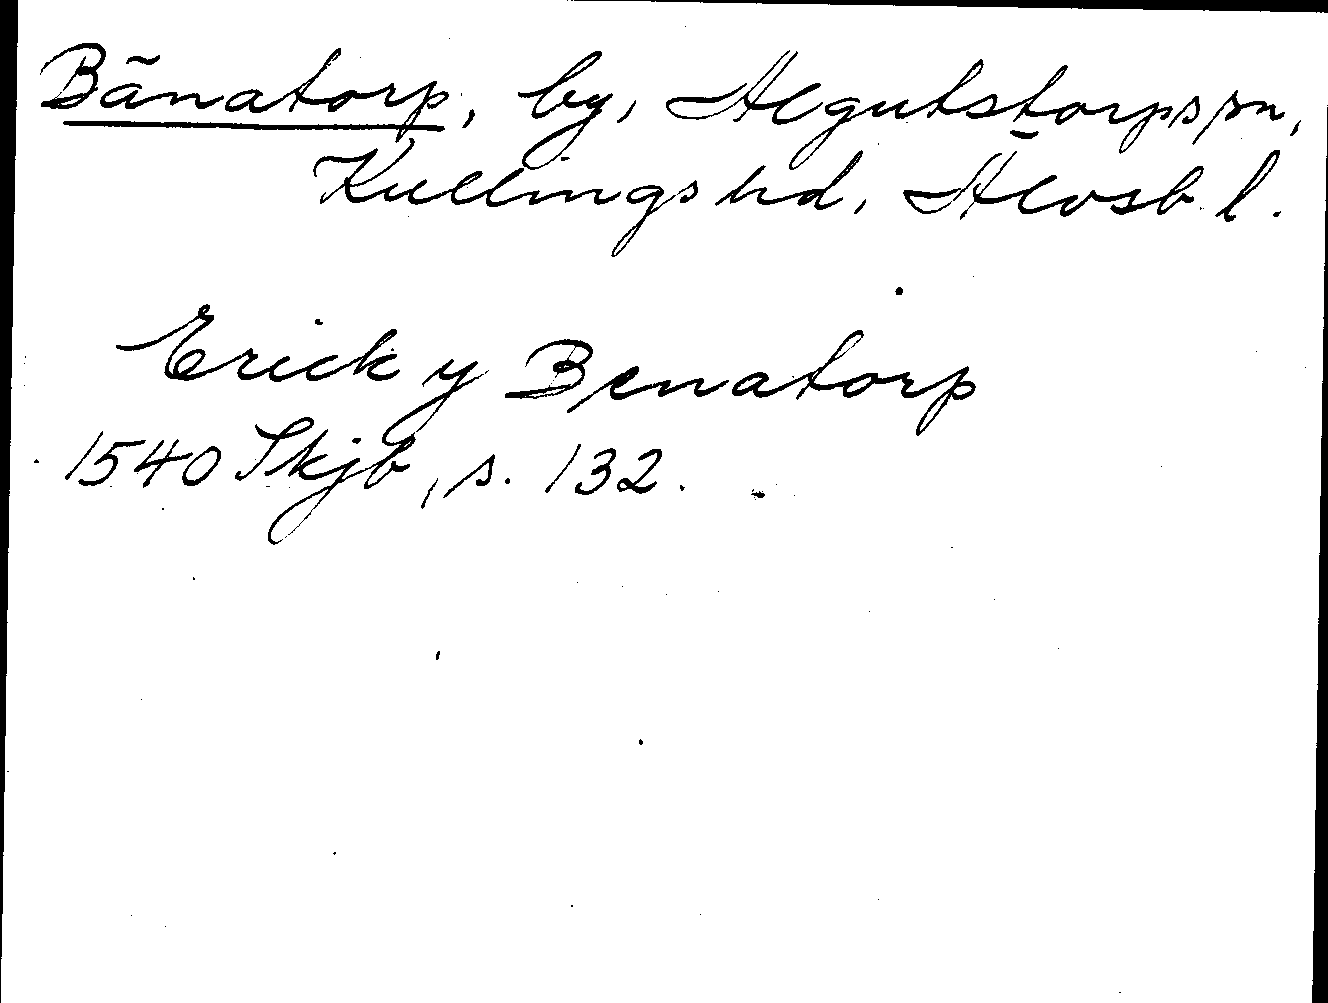 Bänatorp, by, Algutstorps sn,
Kullings hd, Älvsb. l.
Erick y Benatorp
1540 Skjb, s. 132.